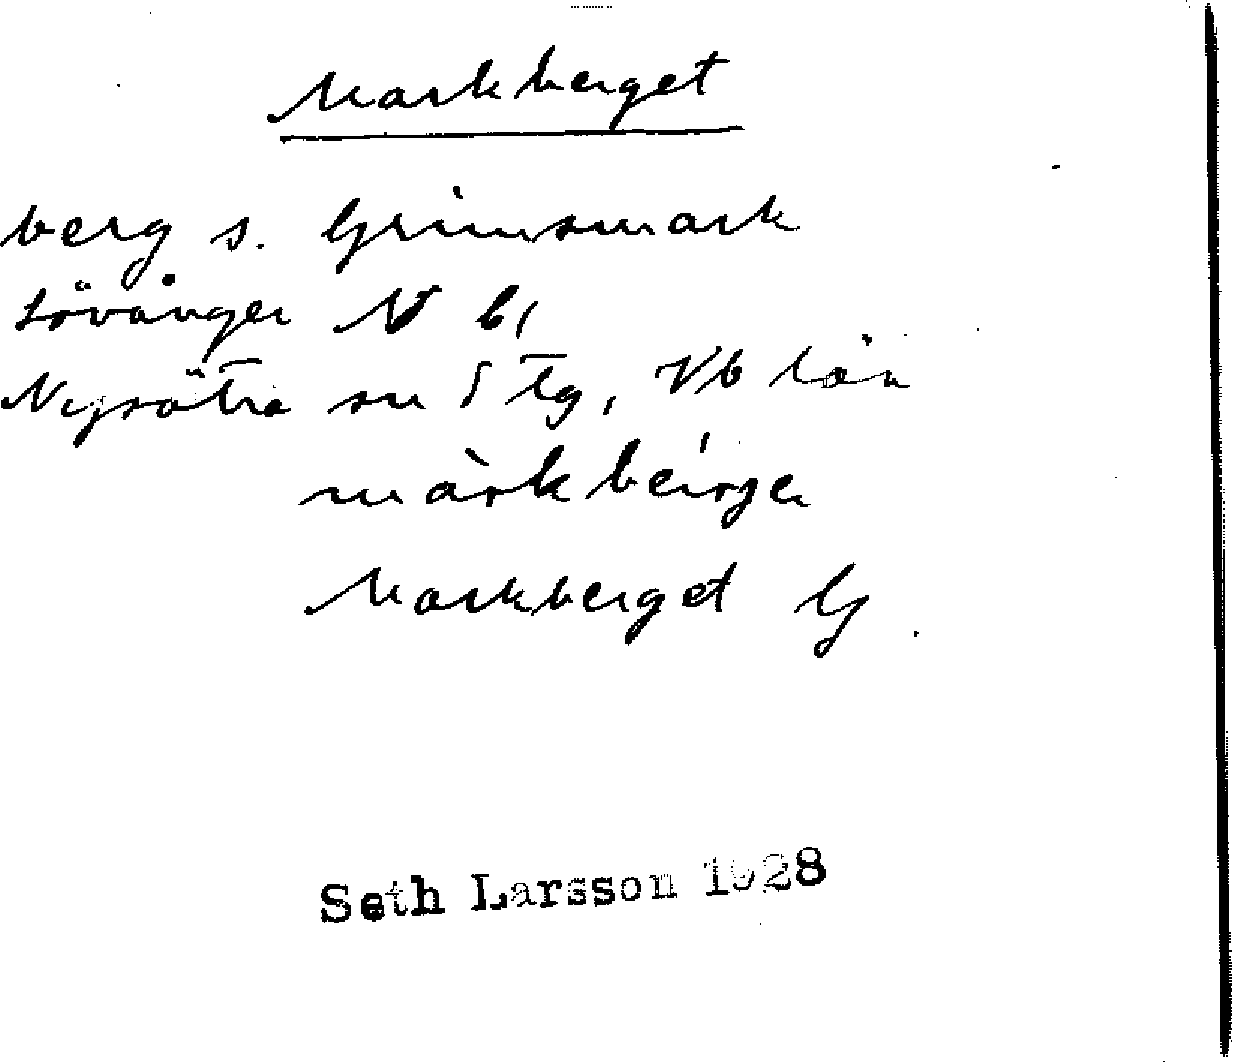 Markberget
berg s. Grimsmark
Lövånger N b,
Nysätra sn S Tg, Vb län
màrkbérge
Markberget G
Seth Larsson 1928